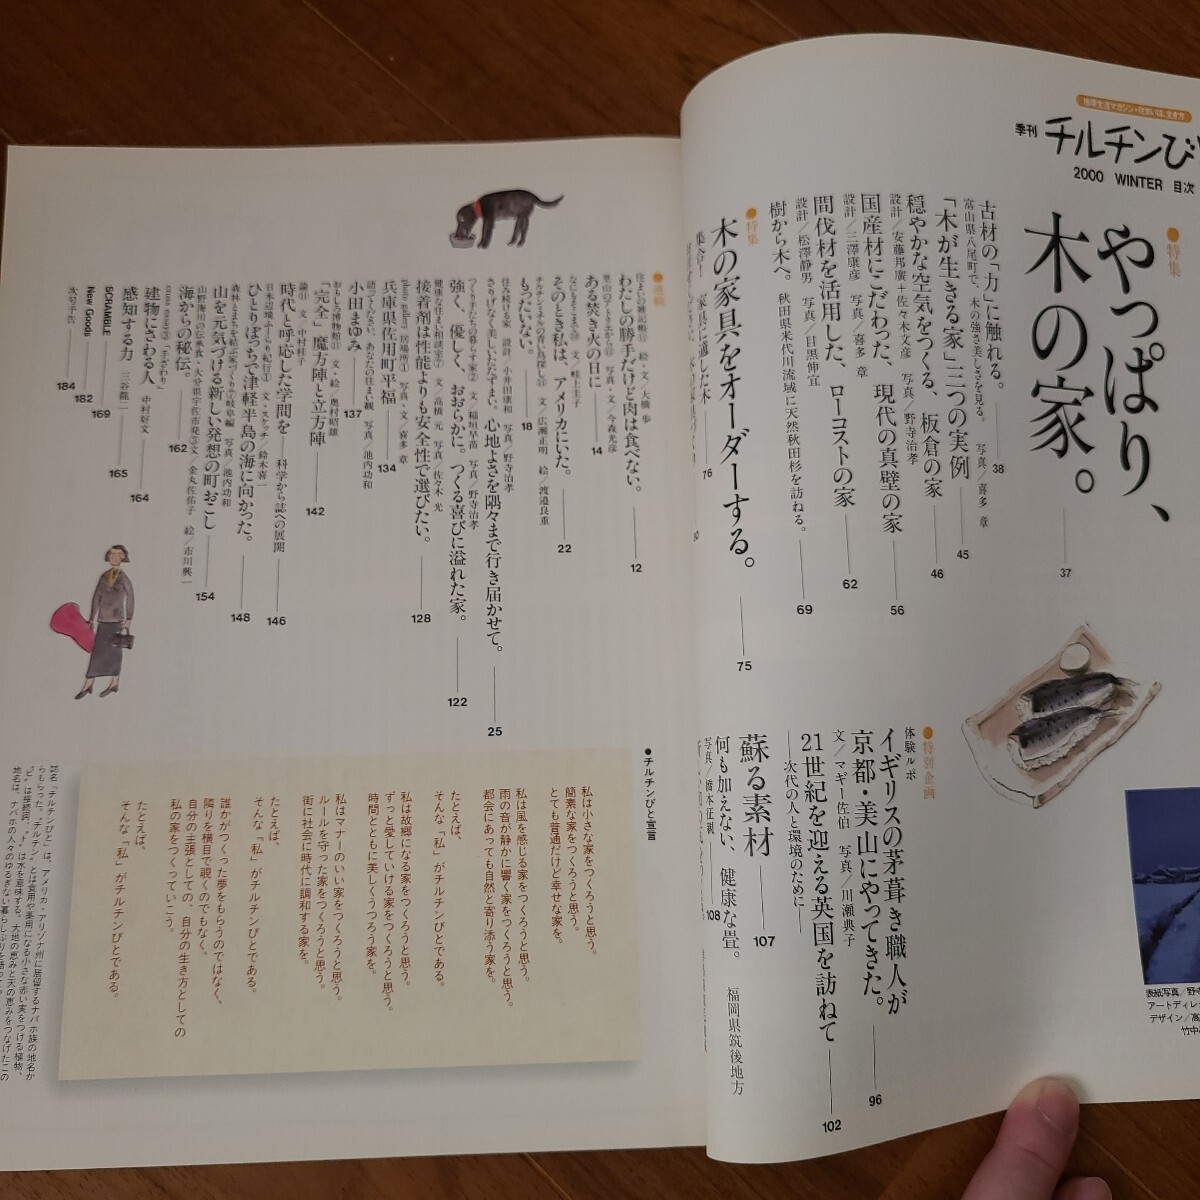 地球生活マガジン・住まいは、生き方
季刊 チルチンび
2000 WINTER 目次
●特集
やっぱり、
木の家。
37
古材の「力」に触れる。
富山県八尾町で、木の強さ美しさを見る。 写真／喜多 章
38
「木が生きる家」三つの実例
45
穏やかな空気をつくる、板倉の家
設計／安藤邦廣＋佐々木文彦 写真／野寺治孝
46
国産材にこだわった、現代の真壁の家
設計／三澤康彦 写真／喜多 章
56
間伐材を活用した、ローコストの家
設計／松澤静男 写真／目黒伸宜
62
樹から木へ。 秋田県米代川流域に天然秋田杉を訪ねる。
69
●特集
木の家具をオーダーする。
75
76
●特別企画
体験ルポ
イギリスの茅葺き職人が
京都・美山にやってきた。
文／マギー佐伯 写真／川瀬典子
96
21世紀を迎える英国を訪ねて
―次代の人と環境のために―
102
蘇る素材
107
何も加えない、健康な畳。 福岡県筑後地方
写真／橋本征親
108
表紙写真／野寺
アートディレ
デザイン／高
竹中
●連載
住まいの雑記帳⑪ 絵・文／大橋 歩
わたしの勝手だけど肉は食べない。
12
里山のアトリエから⑪ 写真・文／今森光彦
ある焚き火の日に
14
文／畦上圭子
そのとき私は、アメリカにいた。
22
チルチンミチルの青い鳥探し⑪ 文／広瀬正明 絵／渡邉良重
もったいない。
18
住み続ける家 設計／小井田康和 写真／野寺治孝
さりげなく美しいたたずまい。心地よさを隅々まで行き届かせて。
25
つくり手たちの暮らす家② 文／稲垣早苗 写真／野寺治孝
強く、優しく、おおらかに。つくる喜びに溢れた家。
122
健康な住まい相談室⑦ 文／高橋 元 写真／佐々木 光
接着剤は性能よりも安全性で選びたい。
128
photo gallery 居場所① 写真・文／喜多 章
兵庫県佐用町平福
134
語ってください、あなたの住まい観 写真／池内功和
小田まゆみ
137
おもしろ博物館⑪ 文・絵／奥村昭雄
「完全」魔方陣と立方陣
142
論⑪ 文／中村桂子
時代と呼応した学問を 科学から誌への展開
146
日本辺境ふーらり紀行① 文・スケッチ／鈴木喜一
ひとりぼっちで津軽半島の海に向かった。
148
森林とまちを結ぶ家づくり⑦岐阜編 写真／池内功和
山を元気づける新しい発想の町おこし
154
山野海川の伝承食・大分県宇佐市発③ 文／金丸佐佑子 絵／市川興一
海からの秘伝。
162
建物にさわる人 中村好文
164
感知する力 三谷龍二
165
SCRAMBLE
169
New Goods
182
次号予告
184
●チルチンびと宣言
私は小さな家をつくろうと思う。
簡素な家をつくろうと思う。
とても普通だけど幸せな家を。
私は風を感じる家をつくろうと思う。
雨の音が静かに響く家をつくろうと思う。
都会にあっても自然と寄り添う家を。
たとえば、
そんな「私」がチルチンびとである。
私は故郷になる家をつくろうと思う。
ずっと愛していける家をつくろうと思う。
時間とともに美しくうつろう家を。
私はマナーのいい家をつくろうと思う。
ルールを守った家をつくろうと思う。
街に社会に時代に調和する家を。
たとえば、
そんな「私」がチルチンびとである。
誰かがつくった夢をもらうのではなく、
隣りを横目で覗くのでもなく、
自分の主張としての、自分の生き方としての
私の家をつくっていこう。
たとえば、
そんな「私」がチルチンびとである。
誌名「チルチンびと」は、アメリカ・アリゾナ州に居留するナバホ族の地名か
らもらった。“チルチン”とは食用や薬用になる小さな赤い実をつける植物、
“ビ”は接続詞、“ト”は水を意味する。大地の恵みと天の恵みをつなげたこの
地名は、ナバホの人々のゆるぎない暮らしぶりを語って